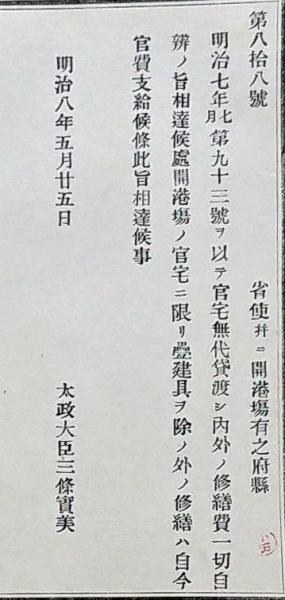 第八拾八號
省使幷ニ開港塲有之府縣
明治七年七月第九十三號ヲ以テ官宅無代貸渡シ內外ノ修繕費一切自
辨ノ旨相達候處開港塲ノ官宅ニ限リ疊建具ヲ除ノ外ノ修繕ハ自今
官費支給候條此旨相達候事
明治八年五月廿五日
太政大臣三條實美